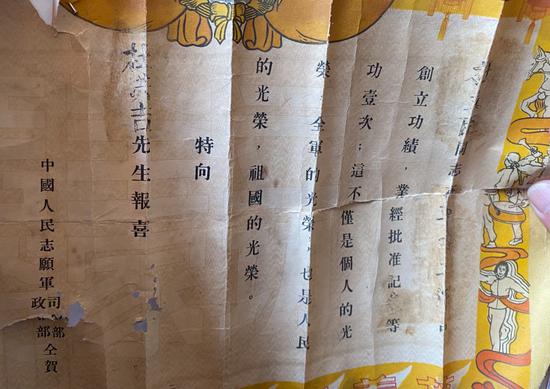 同志
創立功績，業經批准記等
功壹次；這不僅是個人的光
榮，全軍的光榮，也是人民
的光榮，祖國的光榮。
特向
吉先生報喜
中國人民志願軍司部政部仝賀